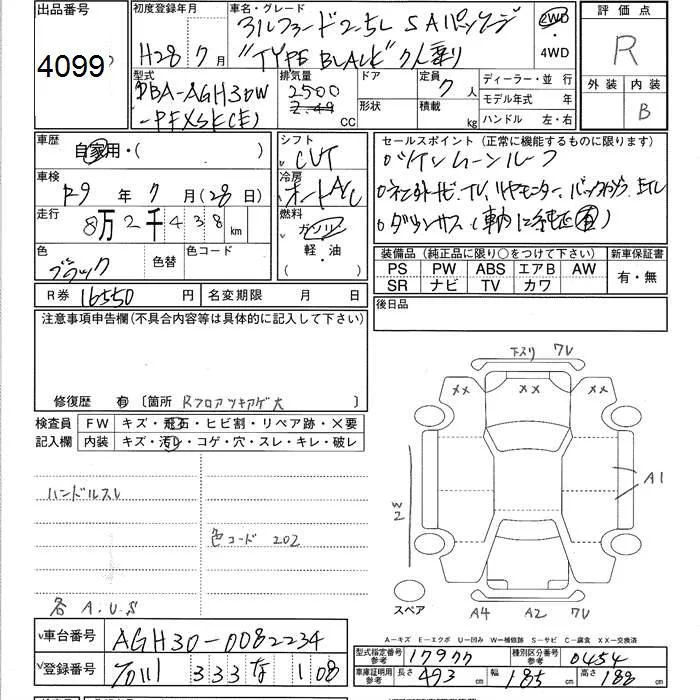 出品番号
4099
初度登録年月
H28 7月
車名・グレード
アルファード2.5L SAパッケージ
"TYPE BLACK" 7人乗り
2WD
4WD
評価点
R
外装 内装
B
型式
DBA-AGH30W
排気量
2500
2.49 CC
ドア
形状
定員
7人
積載 kg
ディーラー・並行
モデル年式 年
ハンドル 左・右
車歴
自家用・( )
車検
R9年 7月(28日)
走行
8万2千438km
色
ブラック
色替
色コード
R券 16550円
名変期限 月 日
シフト
CVT
冷房
オートA/C
燃料
ガソリン
軽・油
( )
セールスポイント(正常に機能するものに限ります)
ETC
装備品(純正品に限り○をつけて下さい)
PS PW ABS エアB AW
SR ナビ TV カワ
新車保証書
有・無
後日品
注意事項申告欄(不具合内容等は具体的に記入して下さい)
修復歴 有 〔箇所 Rフロアツキアゲ大 〕
検査員記入欄
FW キズ・飛石・ヒビ割・リペア跡・×要
内装 キズ・汚レ・コゲ・穴・スレ・キレ・破レ
ハンドルスレ
色コード 202
各 A.U.S
下スリ 7V
XX XX XX
A1
W2
スペア
A4 A2 7V
A-キズ E-エクボ U-凹み W-補修跡 S-サビ C-腐食 XX-交換済
車台番号 AGH30-0082234
登録番号 333 な 108
型式指定番号 参考 17977
種別区分番号 参考 0454
車庫証明用 参考 長さ 493cm 幅 185cm 高さ 188cm